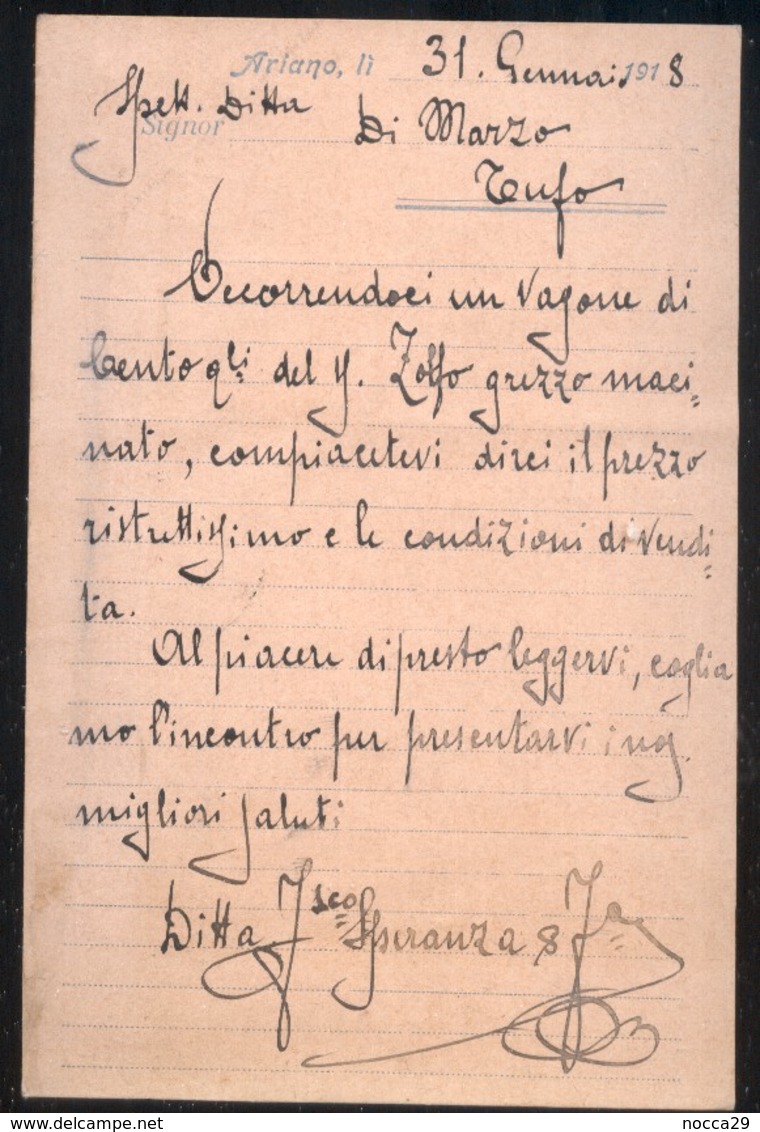 Ariano, lì 31. Gennaio 1918
Spett. Ditta
Signor Di Marzo
Tufo
Occorrendoci un vagone di
Cento qli del V. Zolfo grezzo maci=
nato, compiacetevi dirci il prezzo
ristrettissimo e le condizioni di vendi=
ta.
Al piacere di presto leggervi, coglia
mo l'incontro per presentarvi i
migliori saluti
Ditta Fsco Speranza & Fa
nocca29